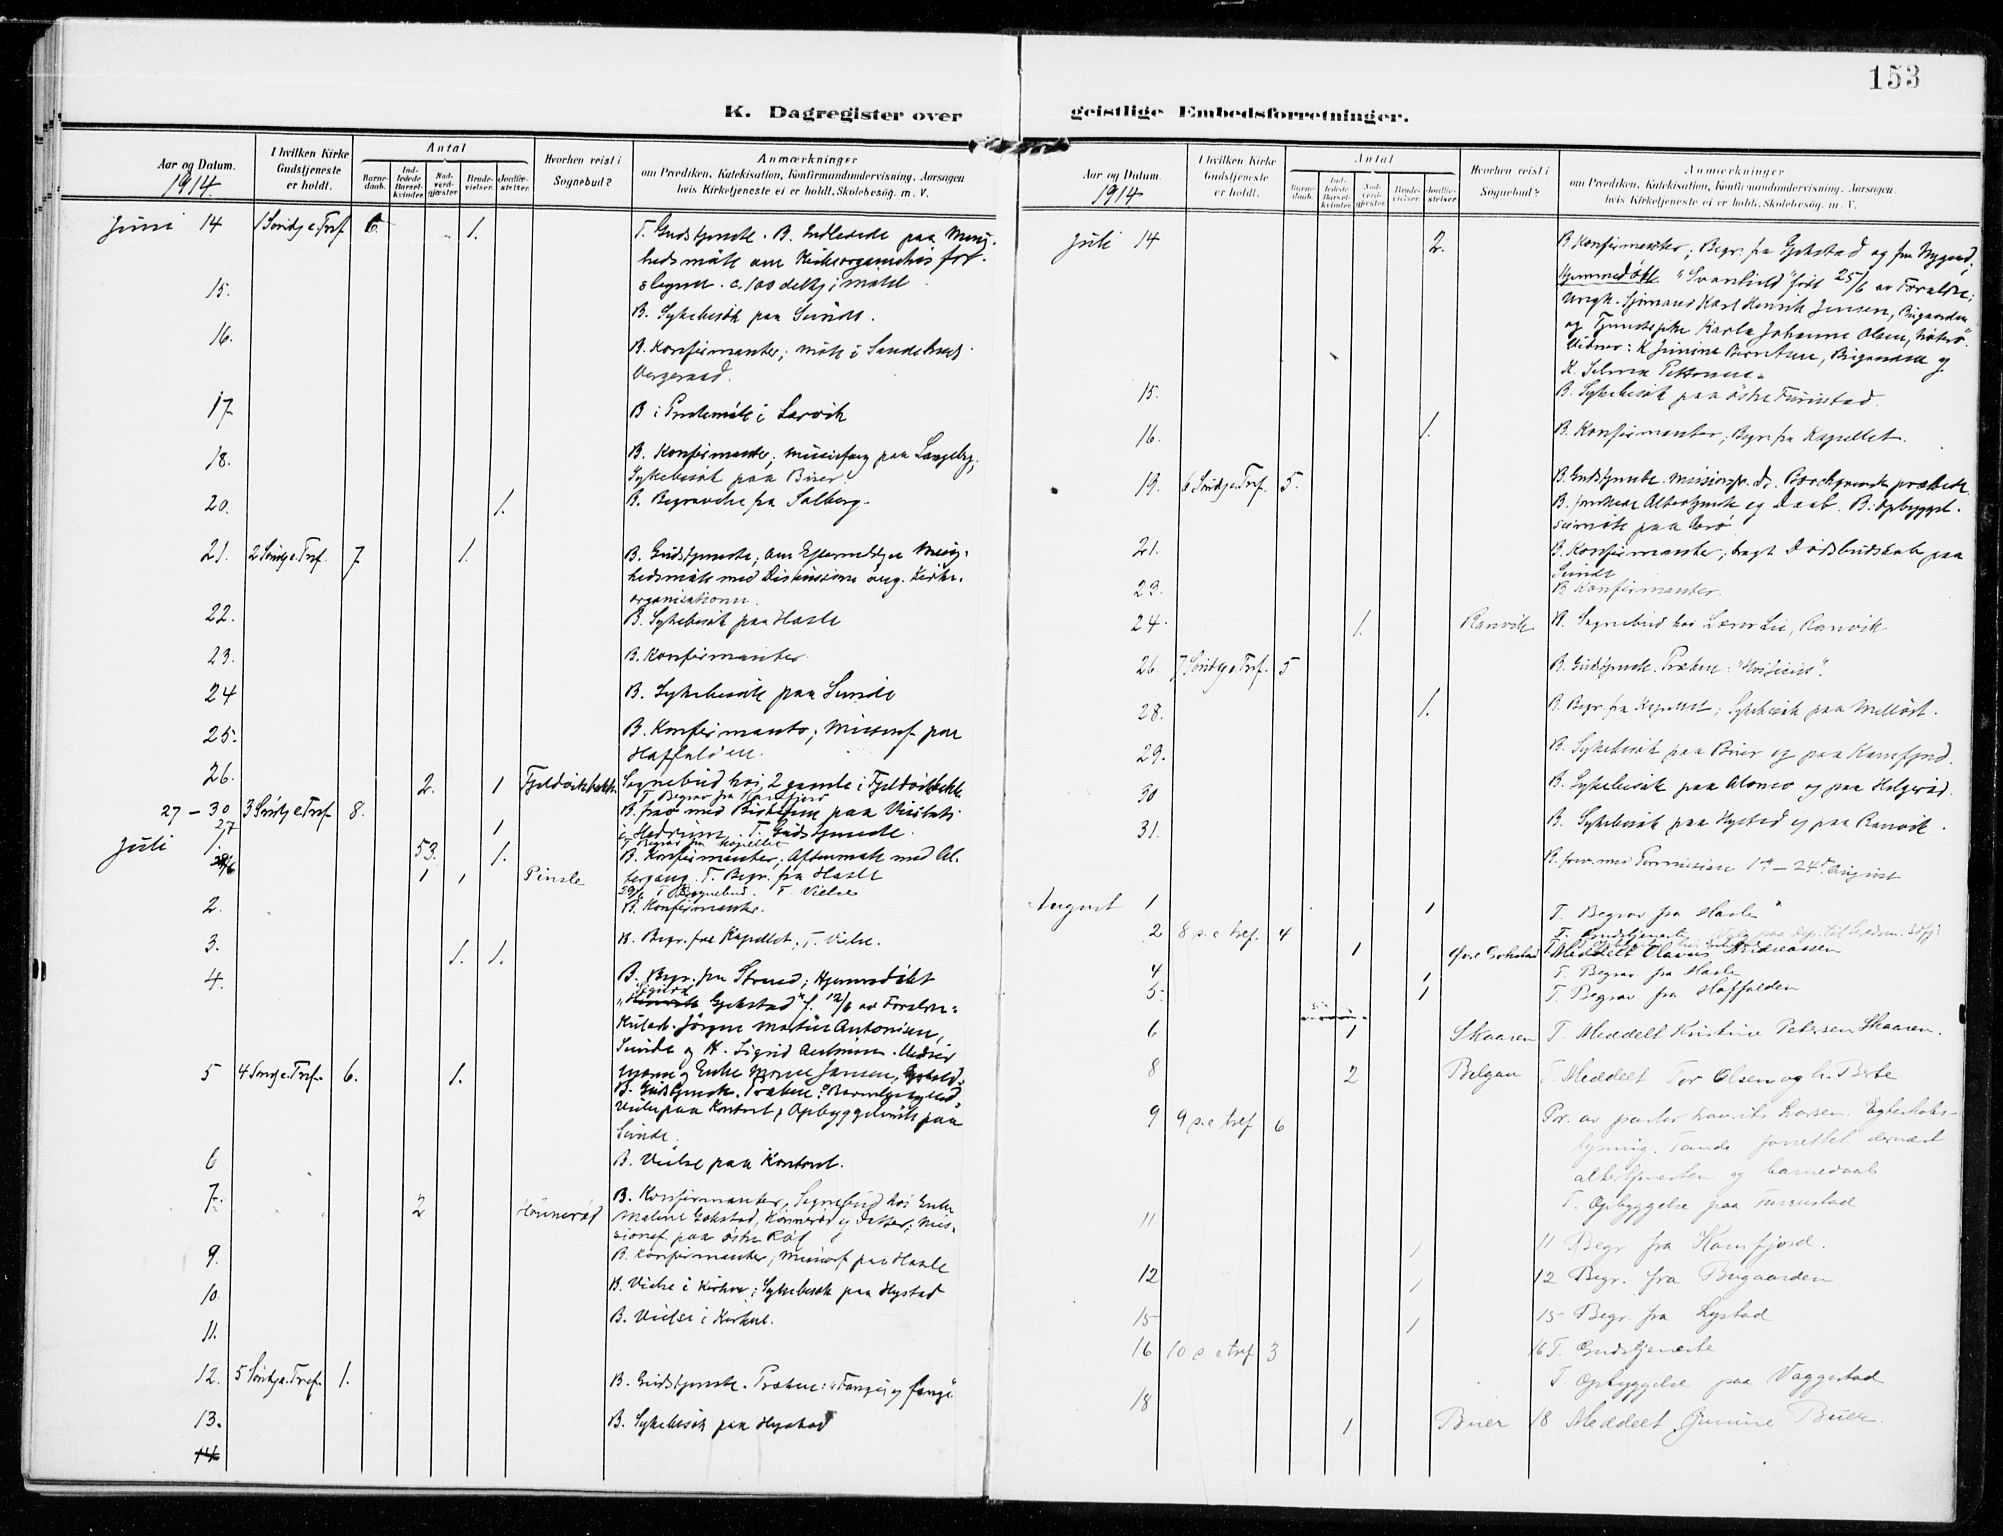 153
K. Dagregister over geistlige Embedsforretninger.
Aar og Datum.
1914.
I hvilken Kirke Gudstjeneste er holdt.
Antal
Barnedaab.
Indledede Barselkvinder.
Nadverdgjæster.
Brudevielser.
Jordfæstelser.
Hvorhen reist i Sognebud?
Anmærkninger
om Prædiken, Katekisation, Konfirmandundervisning, Aarsagen
hvis Kirketjeneste ei er holdt, Skolebesøg. m. V.
Juni 14 1 Søndg e. Tref. 6 1. T. Gudstjeneste. B. Indledede paa Menig-
hedsmøte om Kirkeorganisations for-
slagene. c. 100 deltg i møtet
15. B. Sykebesøk paa Sunde.
16. B. Konfirmanter; møte i Sandeherreds
Vergeraad.
17. B i Prestemøte i Larvik
18. B. Konfirmanter; missionsf. paa Langeby;
Sykebesøk paa Buer.
20. 1. B. Begravelse fra Solberg.
21. 2 Søndg e. Tref. 7 1. B. Gudstjeneste, om Eftermiddagen Menig-
hedsmøte med Diskussion ang. Kirke-
organisationen.
22. B. Sykebesøk paa Hasle
23. B. Konfirmanter.
24 B. Sykebesøk paa Sunde
25. B. Konfirmanter; Missionsf. paa
Haffalden.
26. 2. 1 Fjeldvikbakken Sognebud hos 2 gamle i Fjeldvikbakken
T. Begrav fra Kamfjord
27 – 30 3 Søndg e Tref 8. B. frav. med Biskopen paa Visitats
27 1 i Hedrum. T. Gudstjeneste.
T. Begrav fra Kapellet
Juli 1. 53. 1. B. Konfirmanter; Aftenmøte med Al-
29/6 1 1 Pinsle tergang. T. Begr. fra Hasle
29/6 T Sognebud. T. Vielse
2. B. Konfirmanter.
3. 1. 1. B. Begr. fra Kapellet. T. Vielse.
4. B. Begr. fra Strand; Hjemmedøbt
Sigurd Gjekstad" f. 12/6 av Foreldre:
Jørgen Martin Antonisen,
Sunde og H. Sigrid
5 4 Søndg e. Tref. 6. 1.
B. Gudstjeneste. Præken:
Vielse paa Kontoret, Opbyggelsesmøte paa
Sunde.
6 B. Vielse paa Kontoret.
7. 2 Hønnerød B. Konfirmanter, Sognebud hos Enke
Maline Gokstad, og Datter; Mis-
sionsf. paa østre Rød
9. B. Konfirmanter; Missionsf paa Hasle
10. B. Vielse i Kirken; Sykebesøk paa Nystad
11. B. Vielse i Kirken.
12. 5 Søndg e. Tref. 1. B. Gudstjeneste. Præken: "Fanger og fange"
13. B. Sykebesøk paa Nystad
14
Aar og Datum.
1914
I hvilken Kirke Gudstjeneste er holdt.
Antal
Barnedaab.
Indledede Barselkvinder.
Nadverdgjæster.
Brudevielser.
Jordfæstelser.
Hvorhen reist i Sognebud?
Anmærkninger
om Prædiken, Katekisation, Konfirmandundervisning, Aarsagen,
hvis Kirketjeneste ei er holdt, Skolebesøg. m. V.
Juli 14 2. B. Konfirmanter; Begr. fra Gjekstad og fra Nygaard;
Hjemmedøbt "Svanhild" født 25/6 av Foreldre:
Ungk. Sjømand Karl Henrik Jensen, Bugaarden
og Tjenestepike Karla Johanne Olsen,
Vidner: K. Jenine Berntsen, Bugaarden og
K. Selma Pettersen.
15. B. Sykebesøk paa østre Furustad.
16. 1. B. Konfirmanter; Begr. fra Kapellet.
19. 6 Søndg e. Tref. 5. B. Gudstjeneste. Missionspr. præket.
B. forrettede Altertjeneste og Daab. B. Opbyggel-
sesmøte paa
21. B. Konfirmanter; bragt Dødsbudskab paa
Sunde
23. B Konfirmanter.
24. 1. Ranvik B. Sognebud hos Lærer Lie, Ranvik
26. 7 Søndg e. Tref. 5 B. Gudstjeneste. Præken:
28. 1. B. Begr. fra Kapellet; Sykebesøk paa Melløst.
29. B. Sykebesøk paa Buer og paa Kamfjord.
30 B. Sykebesøk paa og paa Helgerød.
31. B. Sykebesøk paa Nystad og paa Ranvik.
B. frav. med Permission 1ste – 24de August
August 1 1 T. Begrav fra Hasle
2 8 s. e tref. 4 T. Gudstjeneste
1 Øvre Gokstad T. Meddelt Olavus Andreassen
4 1 T. Begrav fra Hasle
5 1 T. Begrav fra Haffalden
6 1 Skaaren T. Meddelt Kristine Petersen Skaaren.
8 2 Belgau T. Meddelt Tor Olsen og h. Berte
9 9 s. e tref 6 Pr. av pastor Laurits Larsen.
lysning. Tande forrettet dernæst
altertjenesten og barnedaab
T. Opbyggelse paa Furustad
11 1 11 Begr fra Kamfjord.
12 1 12 Begr. fra Bugaarden
15 1 15 Begr fra Nystad
16 10 s e tref 3 16 T. Gudstjeneste
T. Opbyggelse paa Vaggestad
18 1 Buer 18 Meddelt Jenine Buer.